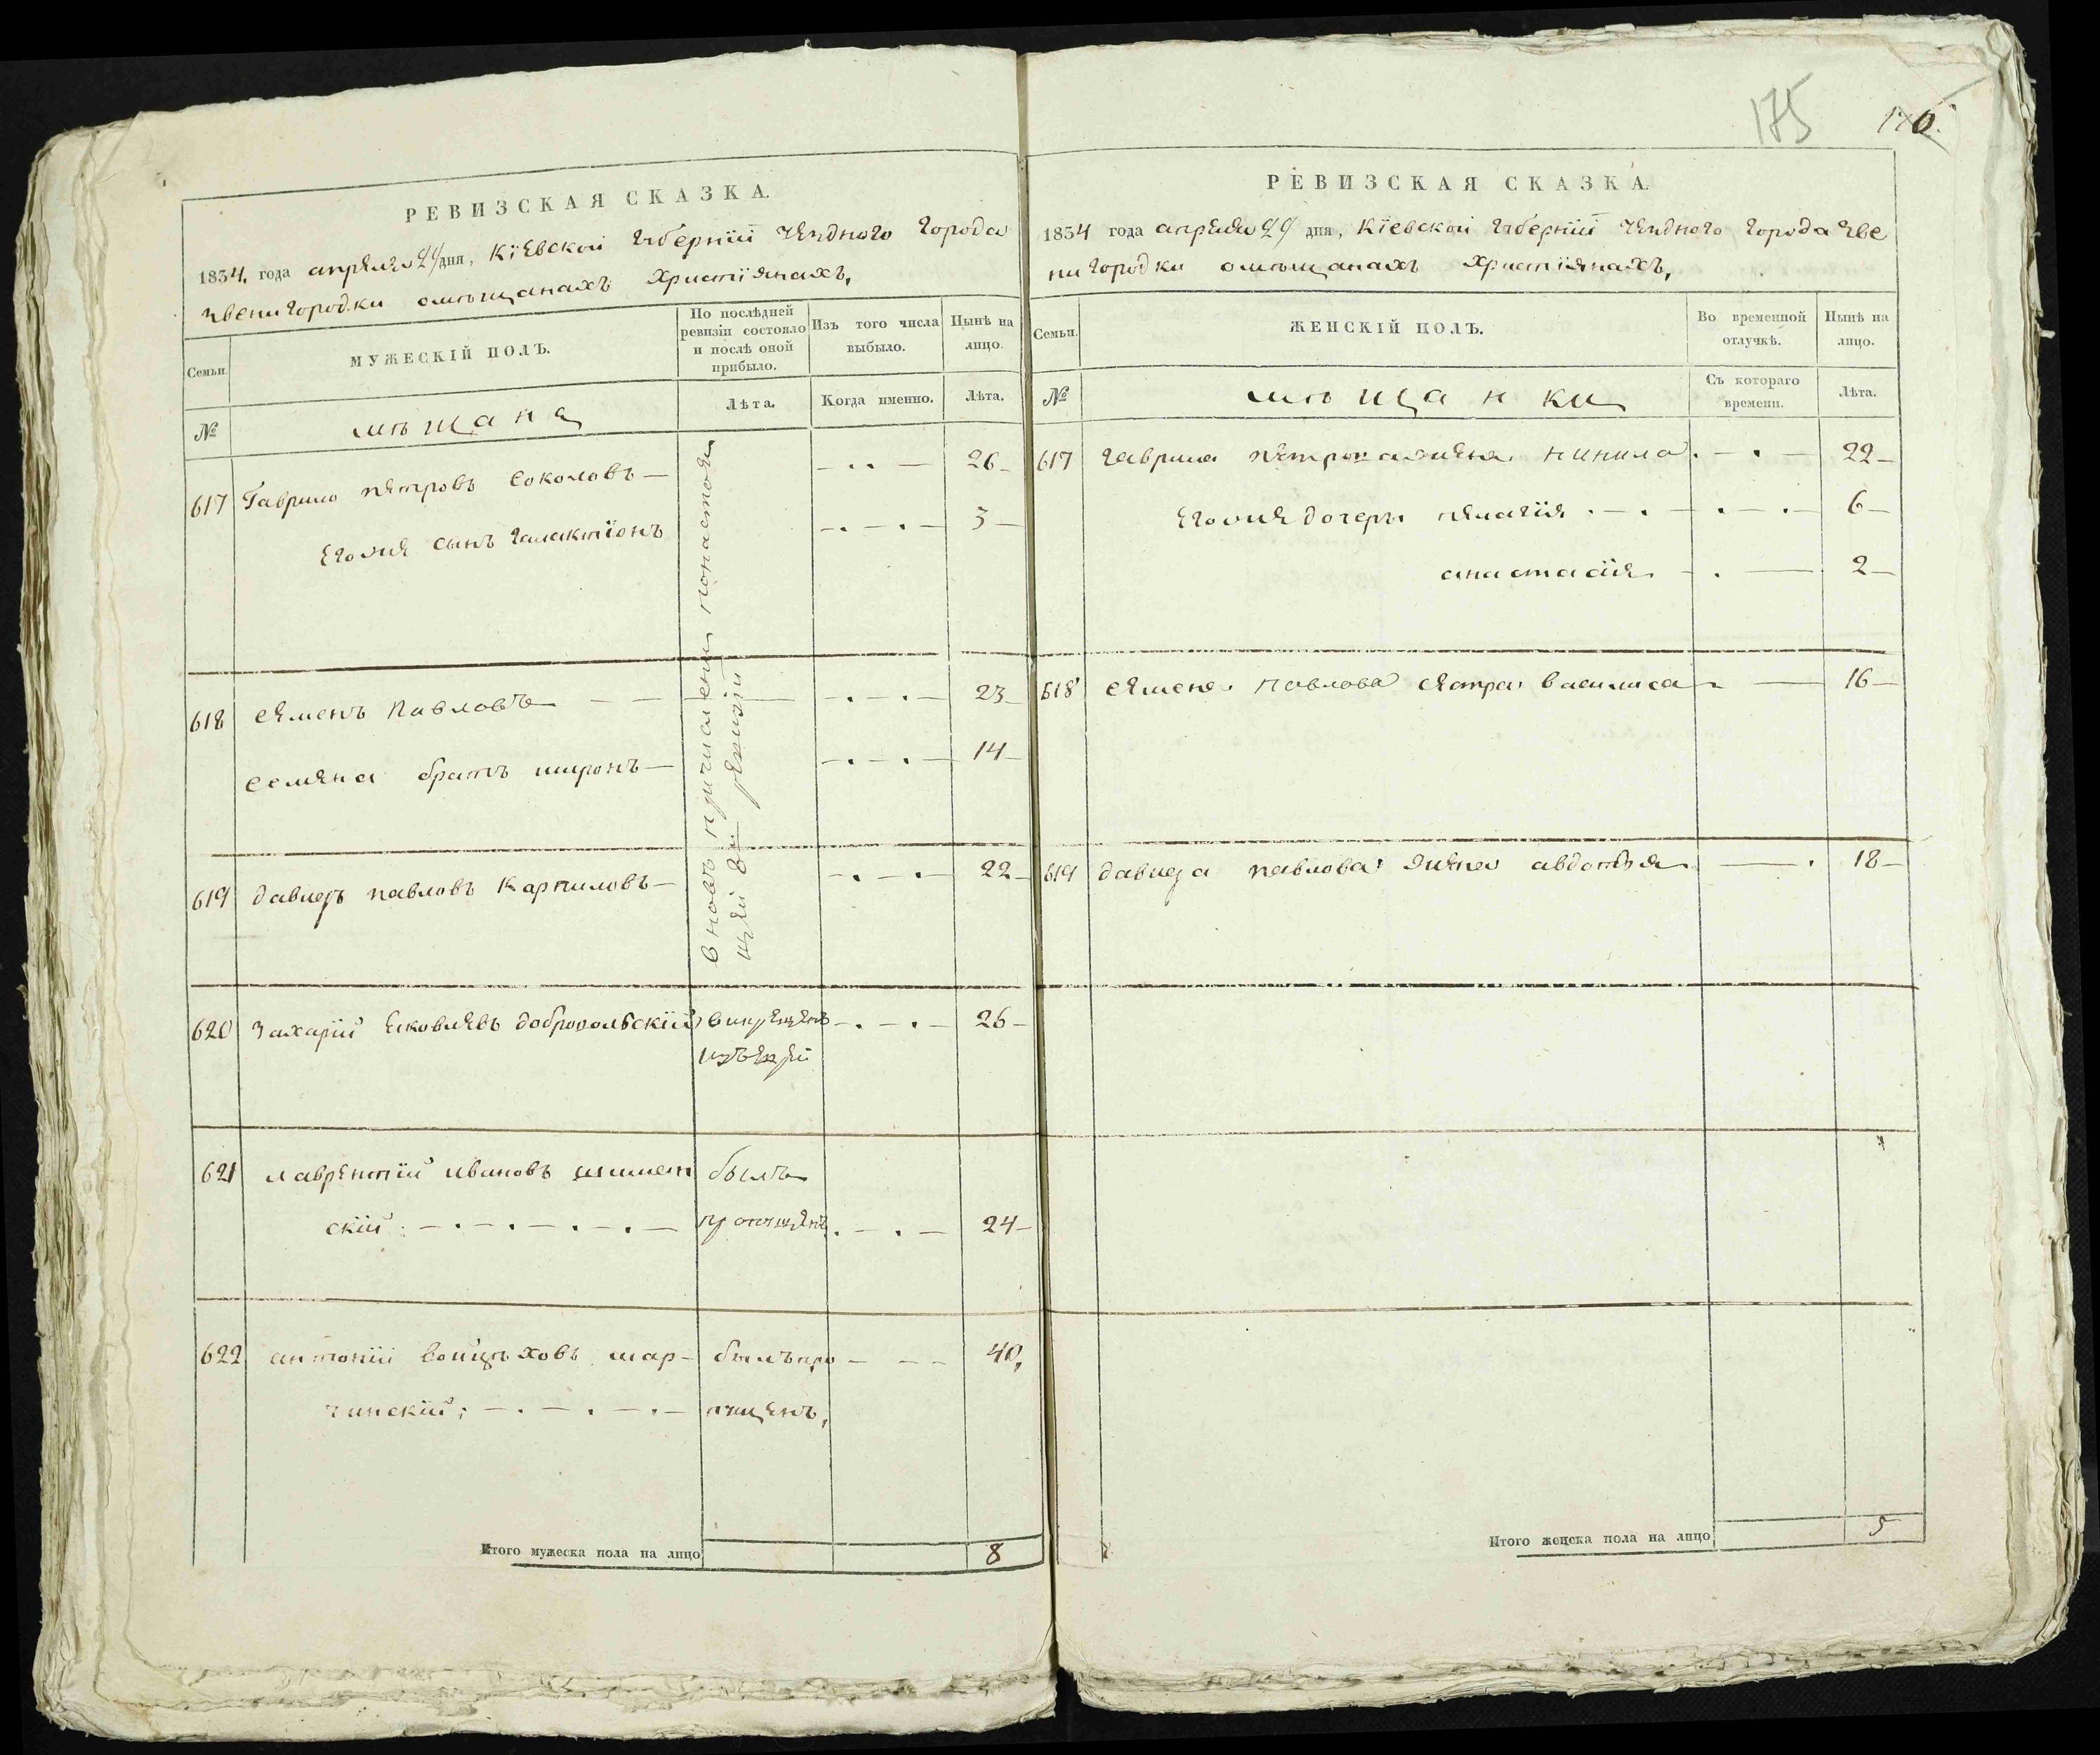 РЕВИЗСКАЯ СКАЗКА.
1834, года апреля 29 дня, Кіевской губерніи уезднаго города
звенигородки омѣщанахъ христіянахъ,
Семьи.
МУЖЕСКІЙ ПОЛЪ.
По послѣдней ревизіи состояло и послѣ оной прибыло.
Изъ того числа выбыло.
Нынѣ на лицо.
№
мѣщане
Лѣта.
Когда именно.
Лѣта.
вновь причислены понастоя
щей 8й ревизіи
617 Гаврило петровъ Соколовъ — 26
Его же сынъ галактіонъ 3
618 семенъ Павловъ 23
семена братъ миронъ — 14
619 давидъ павловъ Карпиловъ — 22
620 захарій яковлевъ добровольскій 26
621 лаврентій ивановъ былъ
скій пропущенъ 24
622 антоній войцѣховъ мар- былъ про 40,
чинскій; пущенъ,
Итого мужеска пола на лицо 8
175
176.
РЕВИЗСКАЯ СКАЗКА.
1834 года апреля 29 дня, Кіевской губерніи уезднаго города зве
нигородки омѣщанахъ христіянахъ,
Семьи.
ЖЕНСКІЙ ПОЛЪ.
Во временной отлучкѣ.
Нынѣ на лицо.
№
мѣщанки
Съ котораго времени.
Лѣта.
617 гаврила петрова жена нинила 22
Его же дочери пелагія 6
анастасія 2
618 семена Павлова сестра василиса 16
619 давида павлова жена авдотья 18
Итого женска пола на лицо 5